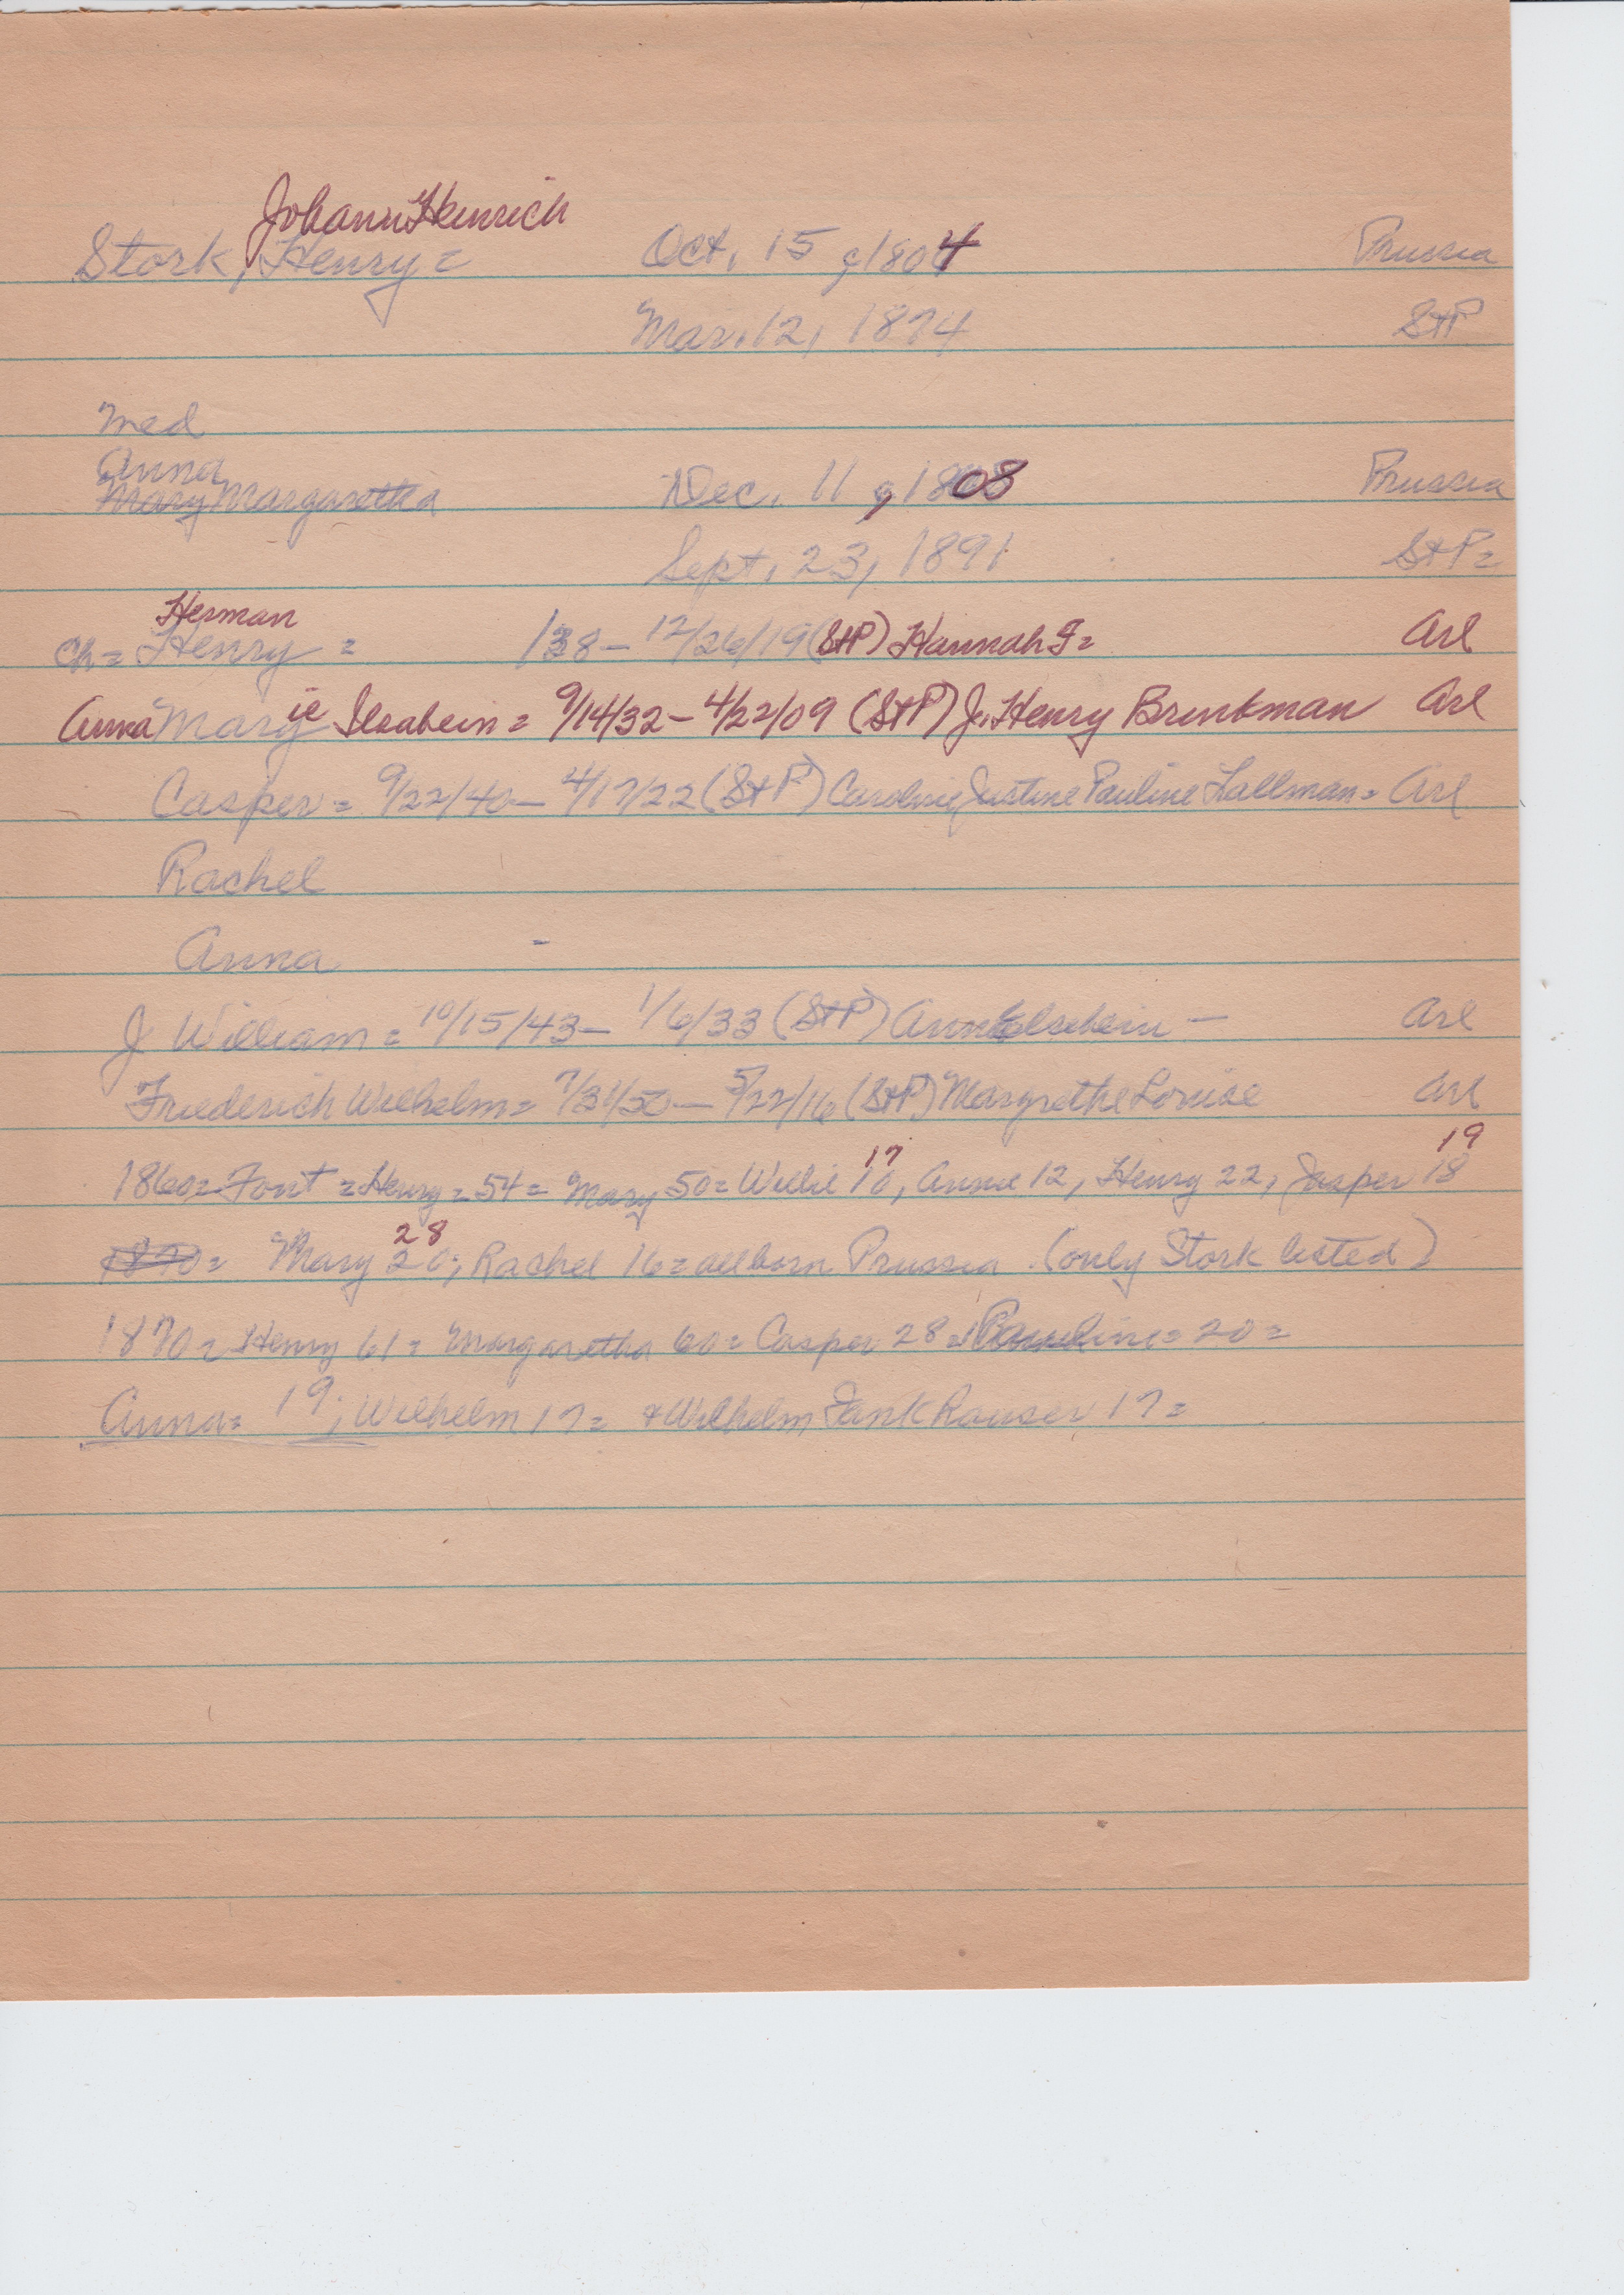 Johann Heinrich
Stork, Henry = Oct. 15, 1804 Prussia
Mar. 12, 1874 StP
med
Anna
Mary Margaretha Dec. 11, 1808 Prussia
Sept. 23, 1891 StP=
Herman
ch = Henry = 1838 – 12/26/19 (StP) Hannah F= Arl
Anna Marie Ilsabein = 9/14/32 – 4/22/09 (StP) J. Henry Brinkman Arl
Casper = 9/22/40 – 4/17/22 (StP) Caroline Justine Pauline Lallman = Arl
Rachel
Anna -
J William = 10/15/43 – 1/6/33 (StP) Ann Elschein – Arl
Friederich Wilhelm = 7/31/50 – 5/22/16 (StP) Margrethe Louise Arl
17 19
1860 = Font = Henry = 54 = Mary 50 = Willie 16, Annie 12, Henry 22, Jasper 18
28
1870 = Mary 20; Rachel 16 = all born Prussia. (only Stork listed)
1870 = Henry 61 = Margaretha 60 = Casper 28 = Pauline = 20 =
Anna = 19; Wilhelm 17 = + Wilhelm 17 =